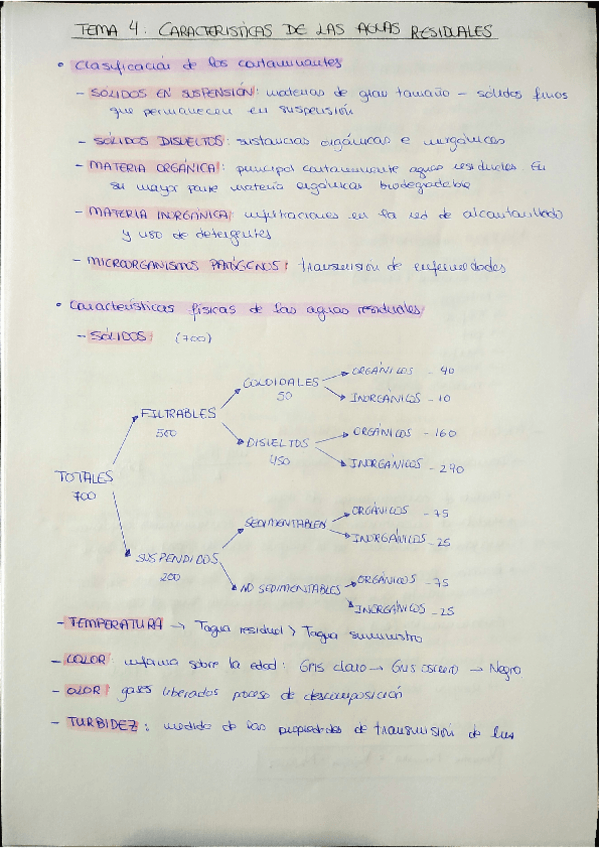 TEMA 4. CARACTERISTICAS DE LAS AGUAS RESIDUALES
• Clasificación de los contaminantes
- SÓLIDOS EN SUSPENSIÓN: materias de gran tamaño - sólidos finos
que permanecen en suspensión
- SÓLIDOS DISUELTOS: sustancias orgánicas e inorgánicas
- MATERIA ORGÁNICA: principal contaminante aguas residuales. En
su mayor parte materia orgánicas biodegradable
- MATERIA INORGÁNICA: infiltraciones en la red de alcantarillado
y uso de detergentes
- MICROORGANISMOS PATÓGENOS: transmisión de enfermedades
• Características físicas de las aguas residuales
- SÓLIDOS: (700)
TOTALES
700
FILTRABLES
500
COLOIDALES
50
ORGÁNICOS - 40
INORGÁNICOS - 10
DISUELTOS
450
ORGÁNICOS - 160
INORGÁNICOS - 290
SUSPENDIDOS
200
SEDIMENTABLES
ORGÁNICOS - 75
INORGÁNICOS - 25
NO SEDIMENTABLES
ORGÁNICOS - 75
INORGÁNICOS - 25
- TEMPERATURA → Tagua residual > Tagua suministro
- COLOR: informa sobre la edad: Gris claro → Gris oscuro → Negro
- OLOR: gases liberados proceso de descomposición
- TURBIDEZ: medida de las propiedades de transmisión de luz